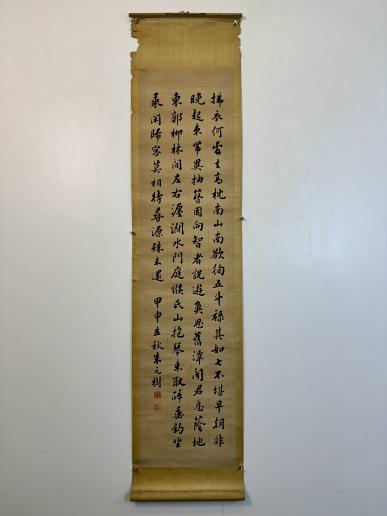 拂衣何處去高枕南山南欲徇五斗祿其如七不堪早朝非
晚起束帶異抽簪因向智者說遊魚思舊潭聞君息蔭地
東郭柳林間左右瀍澗水門庭緱氏山抱琴來取醉垂釣坐
乘閑歸客莫相待尋源殊未還 甲申立秋朱元樹